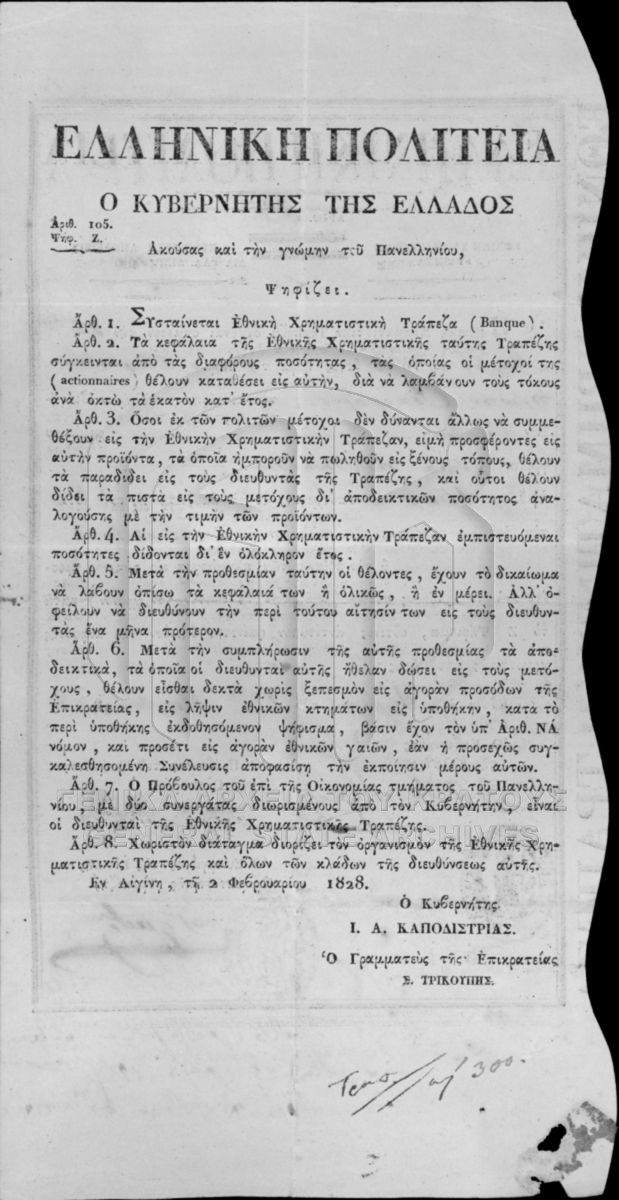 ΕΛΛΗΝΙΚΗ ΠΟΛΙΤΕΙΑ
Ο ΚΥΒΕΡΝΗΤΗΣ ΤΗΣ ΕΛΛΑΔΟΣ
Ἀριθ. 105.
Ψηφ. Ζ.
Ἀκούσας καὶ τὴν γνώμην τοῦ Πανελληνίου,
Ψηφίζει.
Ἄρθ. 1. Συσταίνεται Ἐθνικὴ Χρηματιστικὴ Τράπεζα (Banque).
Ἄρθ. 2. Τὰ κεφάλαιὰ τῆς Ἐθνικῆς Χρηματιστικῆς ταύτης Τραπέζης
σύγκεινται ἀπὸ τὰς διαφόρους ποσότητας, τὰς ὁποίας οἱ μέτοχοί της
(actionnaires) θέλουν καταθέσει εἰς αὐτὴν, διὰ νὰ λαμβάνουν τοὺς τόκους
ἀνὰ ὀκτὼ τὰ ἑκατὸν κατ' ἔτος.
Ἄρθ. 3. Ὅσοι ἐκ τῶν πολιτῶν μέτοχοι δὲν δύνανται ἄλλως νὰ συμμε-
θέξουν εἰς τὴν Ἐθνικὴν Χρηματιστικὴν Τράπεζαν, εἰμὴ προσφέροντες εἰς
αὐτὴν προϊόντα, τὰ ὁποῖα ἠμποροῦν νὰ πωληθοῦν εἰς ξένους τόπους, θέλουν
τὰ παραδίδει εἰς τοὺς διευθυντὰς τῆς Τραπέζης, καὶ οὗτοι θέλουν
δίδει τὰ πιστὰ εἰς τοὺς μετόχους δι' ἀποδεικτικῶν ποσότητος ἀνα-
λογούσης μὲ τὴν τιμὴν τῶν προϊόντων.
Ἄρθ. 4. Αἱ εἰς τὴν Ἐθνικὴν Χρηματιστικὴν Τράπεζαν ἐμπιστευόμεναι
ποσότητες δίδονται δι' ἓν ὁλόκληρον ἔτος.
Ἄρθ. 5. Μετὰ τὴν προθεσμίαν ταύτην οἱ θέλοντες, ἔχουν τὸ δικαίωμα
νὰ λάβουν ὀπίσω τὰ κεφάλαιά των ἢ ὁλικῶς, ἢ ἐν μέρει. Ἀλλ' ὀ-
φείλουν νὰ διευθύνουν τὴν περὶ τούτου αἴτησίν των εἰς τοὺς διευθυν-
τὰς ἕνα μῆνα πρότερον.
Ἄρθ. 6. Μετὰ τὴν συμπλήρωσιν τῆς αὐτῆς προθεσμίας τὰ ἀπο-
δεικτικὰ, τὰ ὁποῖα οἱ διευθυνταὶ αὐτῆς ἤθελαν δώσει εἰς τοὺς μετό-
χους, θέλουν εἶσθαι δεκτὰ χωρὶς ξεπεσμὸν εἰς ἀγορὰν προσόδων τῆς
Ἐπικρατείας, εἰς λῆψιν ἐθνικῶν κτημάτων εἰς ὑποθήκην, κατὰ τὸ
περὶ ὑποθήκης ἐκδοθησόμενον ψήφισμα, βάσιν ἔχον τὸν ὑπ' Ἀριθ. ΝΑ
νόμον, καὶ προσέτι εἰς ἀγορὰν ἐθνικῶν γαιῶν, ἐὰν ἡ προσεχῶς συγ-
καλεσθησομένη Συνέλευσις ἀποφασίσῃ τὴν ἐκποίησιν μέρους αὐτῶν.
Ἄρθ. 7. Ὁ Πρόβουλος τοῦ ἐπὶ τῆς Οἰκονομίας τμήματος τοῦ Πανελλη-
νίου, μὲ δύο συνεργάτας διωρισμένους ἀπὸ τὸν Κυβερνήτην, εἶναι
οἱ διευθυνταὶ τῆς Ἐθνικῆς Χρηματιστικῆς Τραπέζης.
Ἄρθ. 8. Χωριστὸν διάταγμα διορίζει τὸν ὀργανισμὸν τῆς Ἐθνικῆς Χρη-
ματιστικῆς Τραπέζης καὶ ὅλων τῶν κλάδων τῆς διευθύνσεως αὐτῆς.
Ἐν Αἰγίνῃ, τῇ 2 Φεβρουαρίου 1828.
Ὁ Κυβερνήτης
Ι. Α. ΚΑΠΟΔΙΣΤΡΙΑΣ.
Ὁ Γραμματεὺς τῆς Ἐπικρατείας
Σ. ΤΡΙΚΟΥΠΗΣ.
300.